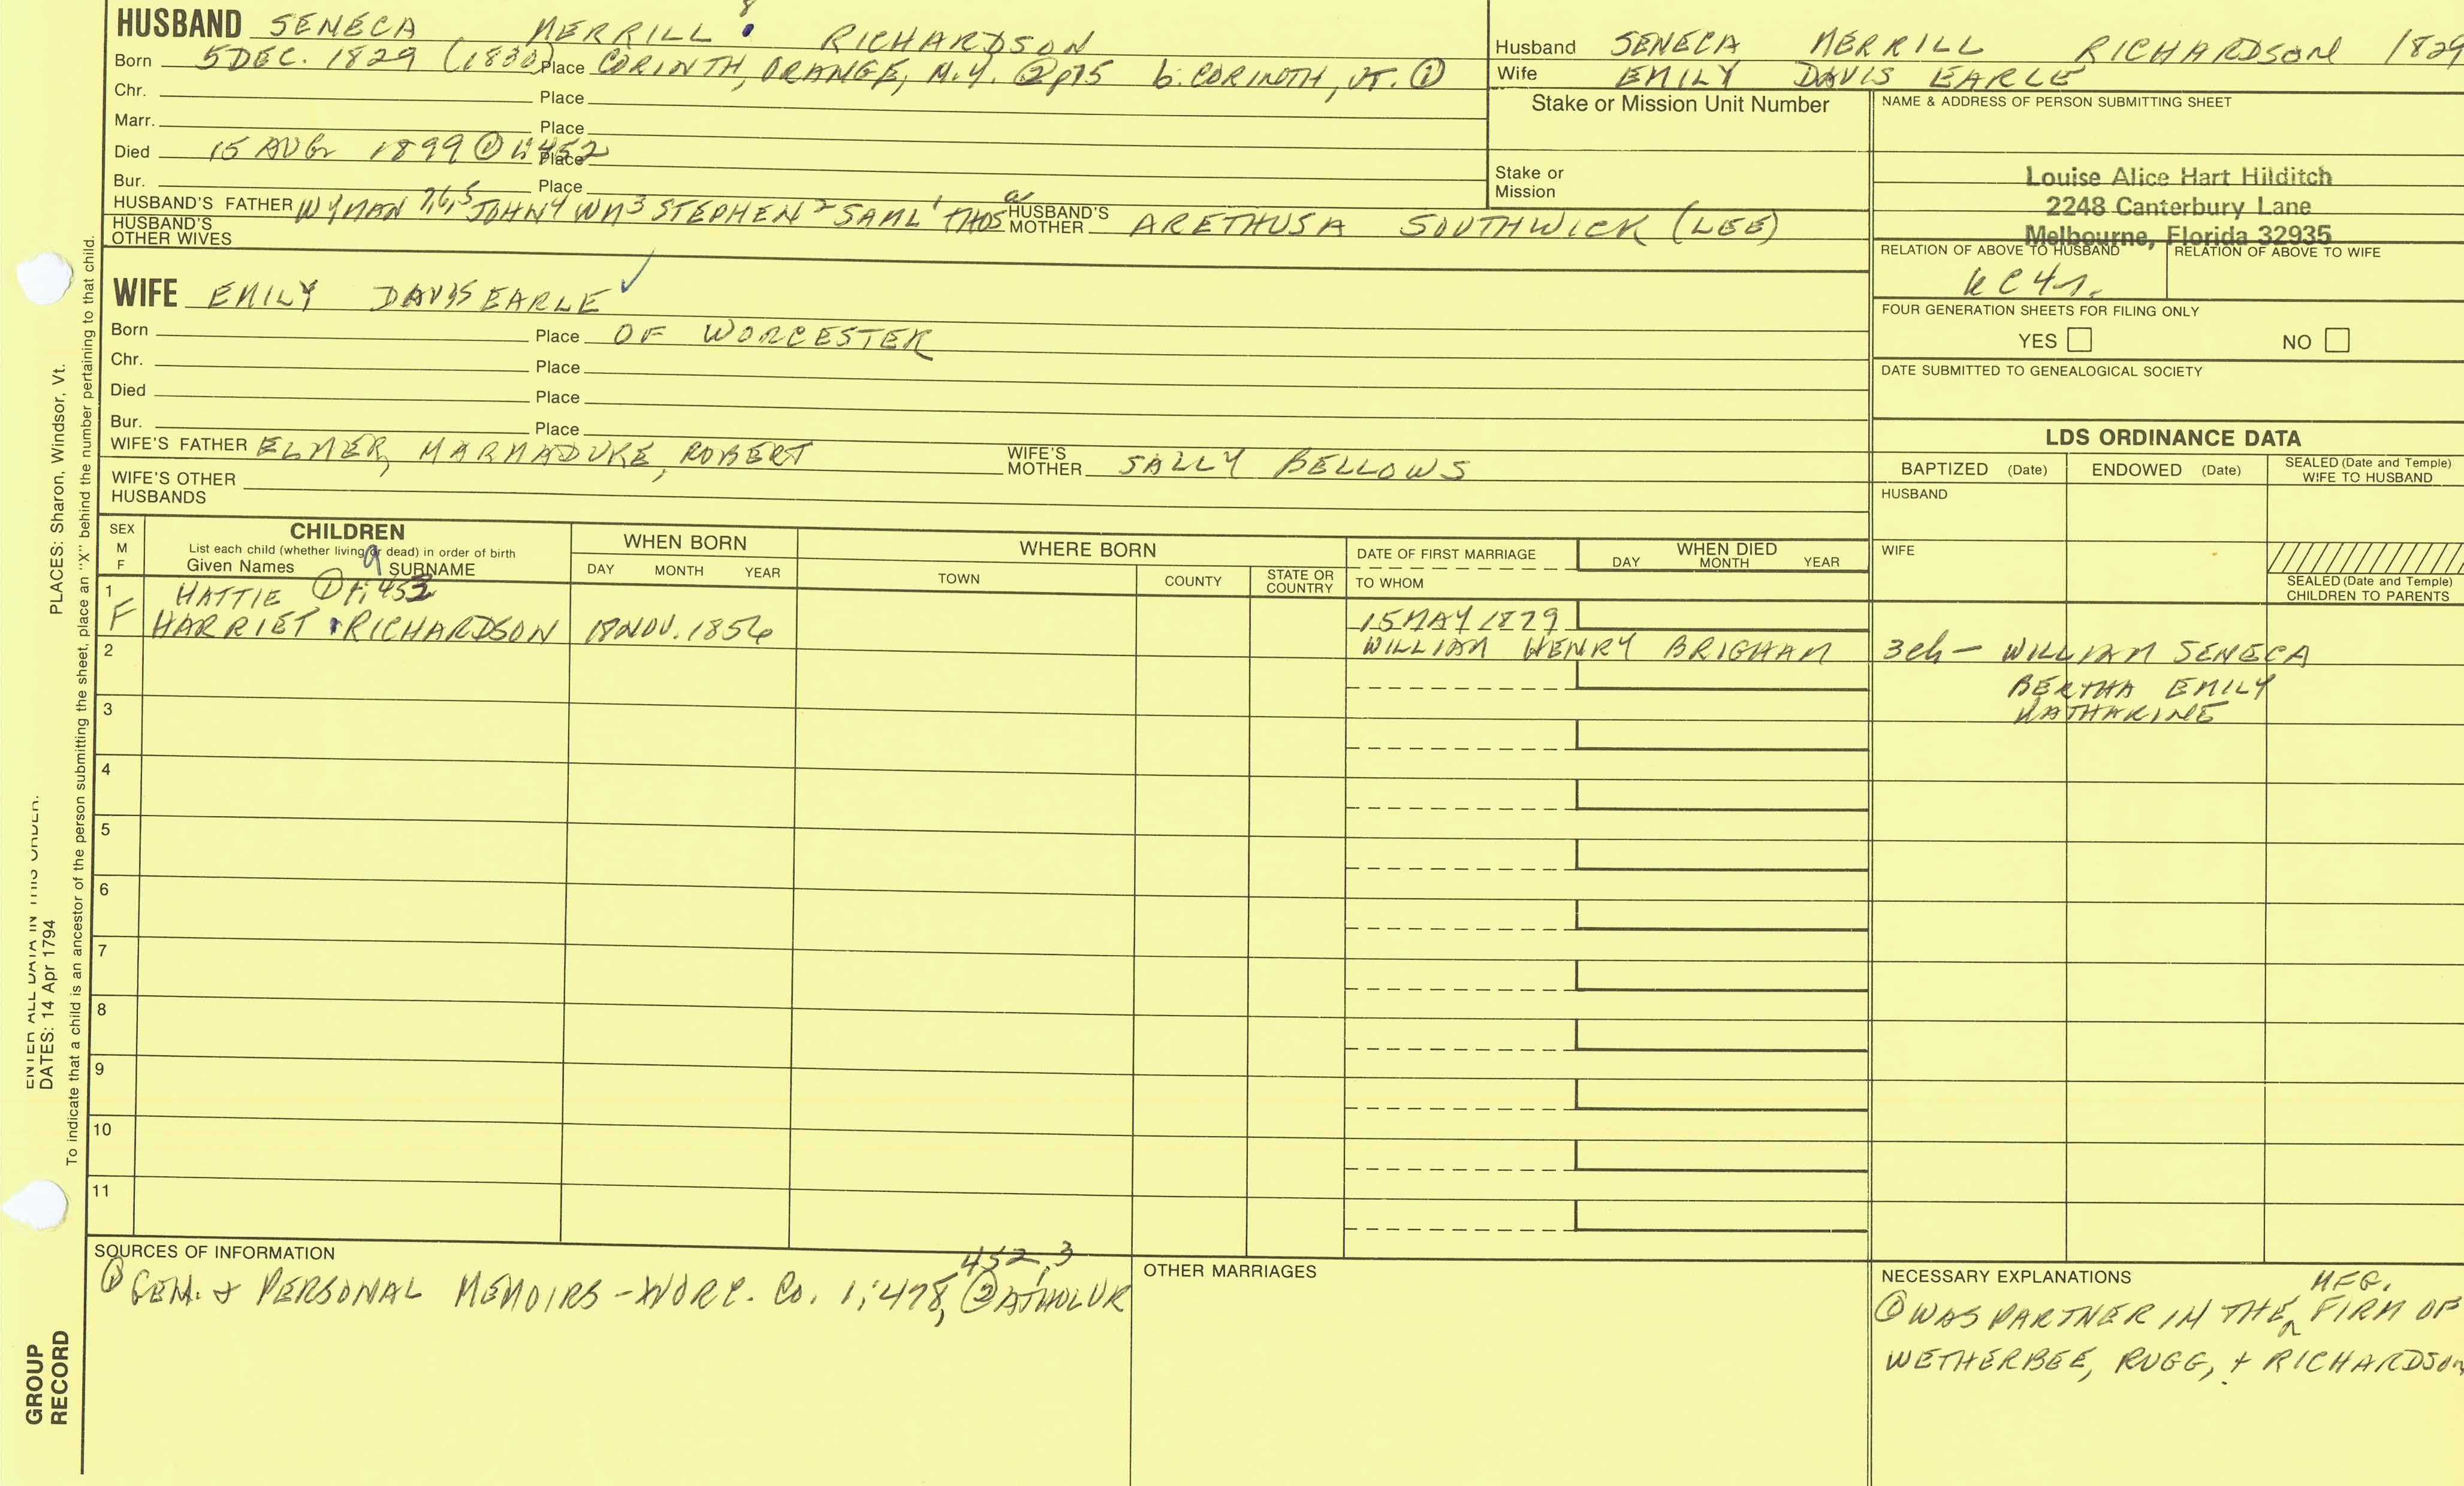 HUSBAND SENECA MERRILL 8 RICHARDSON
Born 5 DEC. 1829 (1830) Place CORINTH, ORANGE, N.Y. ② p75 b. CORINOTH, VT. ①
Chr. Place
Marr. Place
Died 15 AUG 1899 ① Place
Bur. Place
HUSBAND'S FATHER WYMAN 7,6,5 JOHN 4 WM 3 STEPHEN 2 SAML 1 THOS a HUSBAND'S MOTHER ARETHUSA SOUTHWICK (LEE)
HUSBAND'S OTHER WIVES
Husband SENECA MERRILL RICHARDSON 1829
Wife EMILY DAVIS EARLE
Stake or Mission Unit Number
Stake or
Mission
NAME & ADDRESS OF PERSON SUBMITTING SHEET
Louise Alice Hart Hilditch
2248 Canterbury Lane
Melbourne, Florida 32935
RELATION OF ABOVE TO HUSBAND RELATION OF ABOVE TO WIFE
FOUR GENERATION SHEETS FOR FILING ONLY
YES NO
DATE SUBMITTED TO GENEALOGICAL SOCIETY
WIFE EMILY DAVIS EARLE ✓
Born Place OF WORCESTER
Chr. Place
Died Place
Bur. Place
WIFE'S FATHER ELMER, MARMADUKE, ROBERT WIFE'S MOTHER SALLY BELLOWS
WIFE'S OTHER
HUSBANDS
LDS ORDINANCE DATA
BAPTIZED (Date) ENDOWED (Date) SEALED (Date and Temple) WIFE TO HUSBAND
HUSBAND
WIFE
SEALED (Date and Temple)
CHILDREN TO PARENTS
SEX
M
F
CHILDREN
List each child (whether living or dead) in order of birth
Given Names 9 SURNAME
WHEN BORN
DAY MONTH YEAR
WHERE BORN
TOWN COUNTY STATE OR COUNTRY
DATE OF FIRST MARRIAGE
TO WHOM
WHEN DIED
DAY MONTH YEAR
1 HATTIE ① 1;453
F HARRIET RICHARDSON 18 NOV. 1856 15 MAY 1879
WILLIAM HENRY BRIGHAM 3ch — WILLIAM SENECA
BERTHA EMILY
KATHARINE
2
3
4
5
6
7
8
9
10
11
SOURCES OF INFORMATION 452,3
① GEN. & PERSONAL MEMOIRS - WORC. Co. 1;478, ② ATHOL VR
OTHER MARRIAGES
NECESSARY EXPLANATIONS MFG.
① WAS PARTNER IN THE FIRM OF
WETHERBEE, RUGG, + RICHARDSON
PLACES: Sharon, Windsor, Vt.
ENTER ALL DATA IN THIS ORDER:
DATES: 14 Apr 1794
To indicate that a child is an ancestor of the person submitting the sheet, place an "X" behind the number pertaining to that child.
GROUP
RECORD